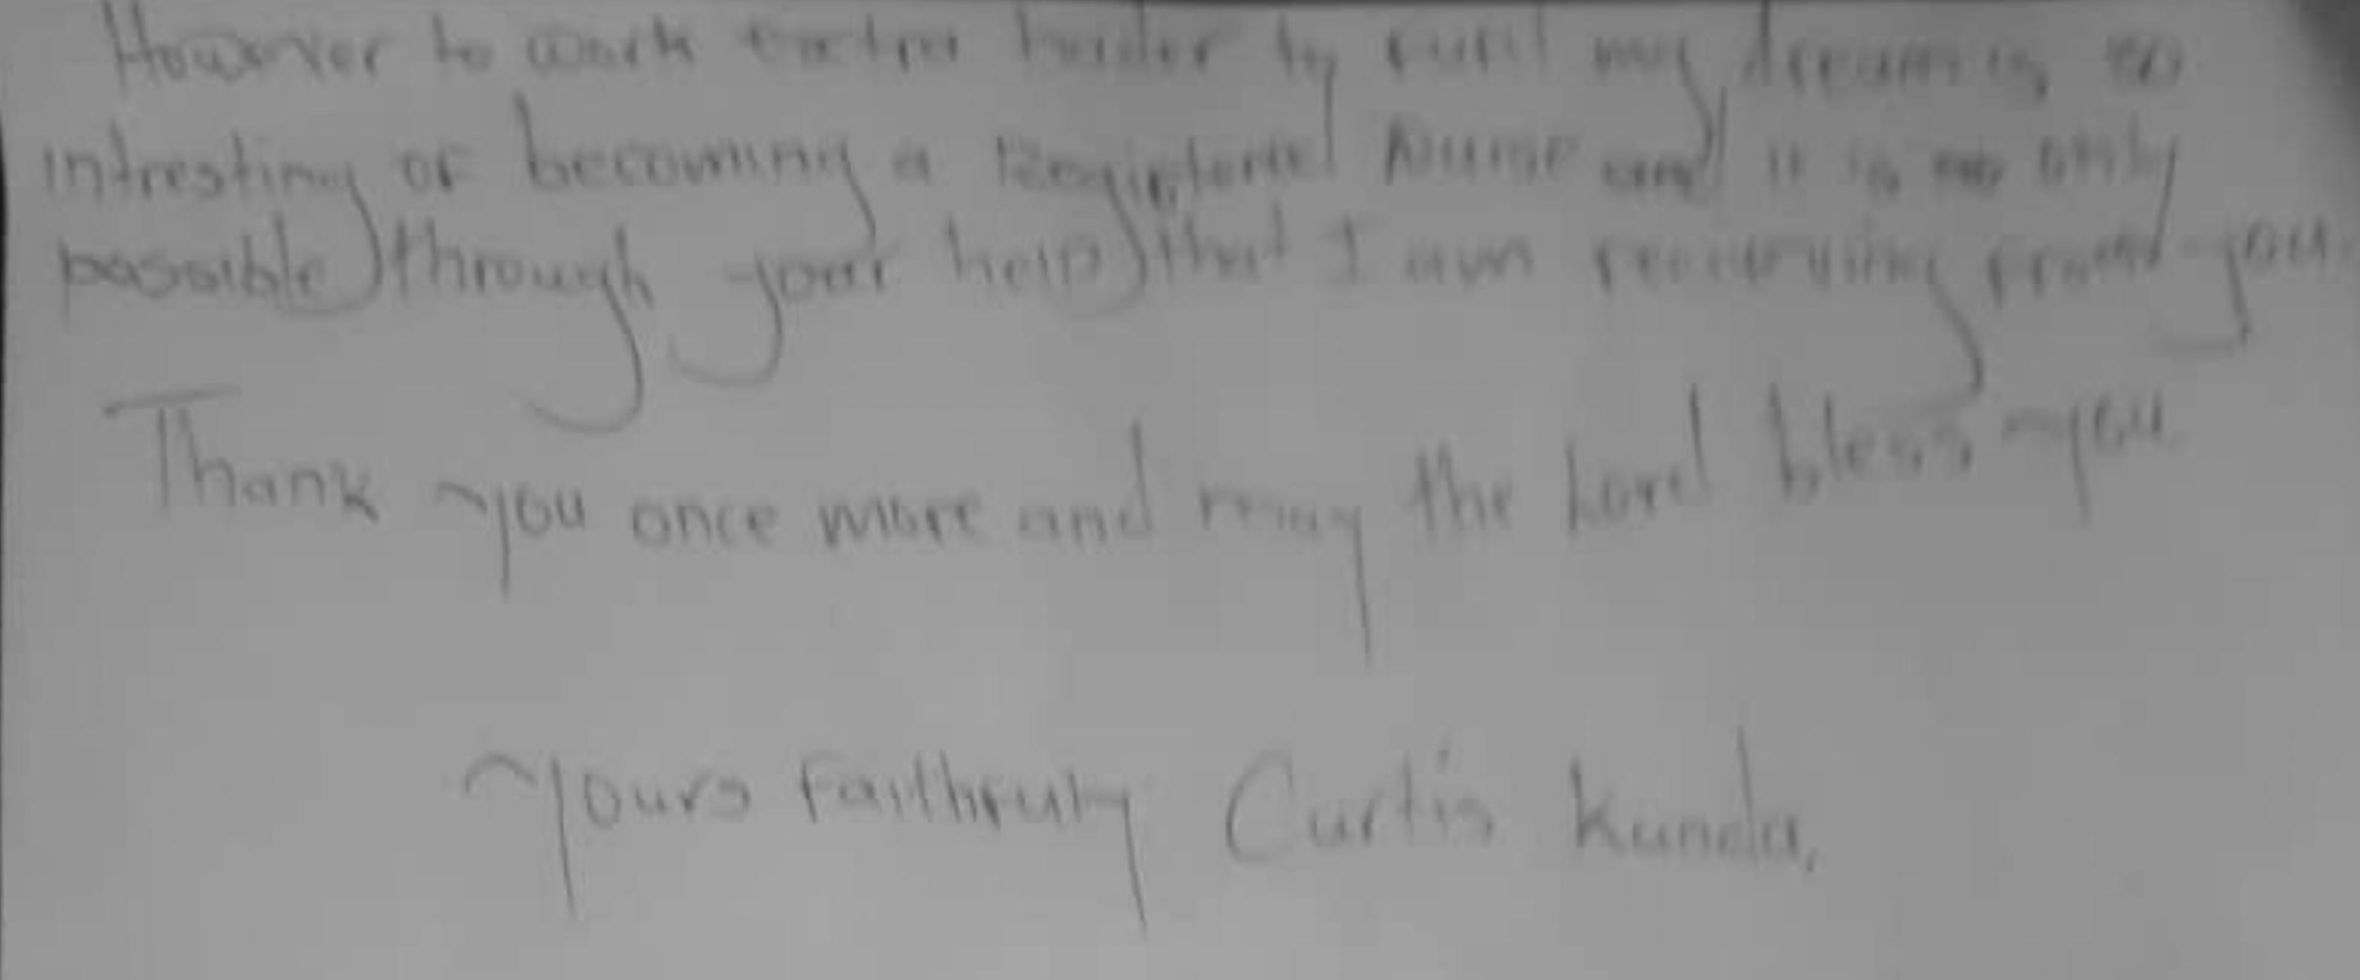 However to work extra harder to fufil my dream is so
intresting of becoming a Registered Nurse and it is only
possible through your help that I am recieving from you.
Thank you once more and may the Lord bless you
Yours Faithfuly Curtis Kunda.